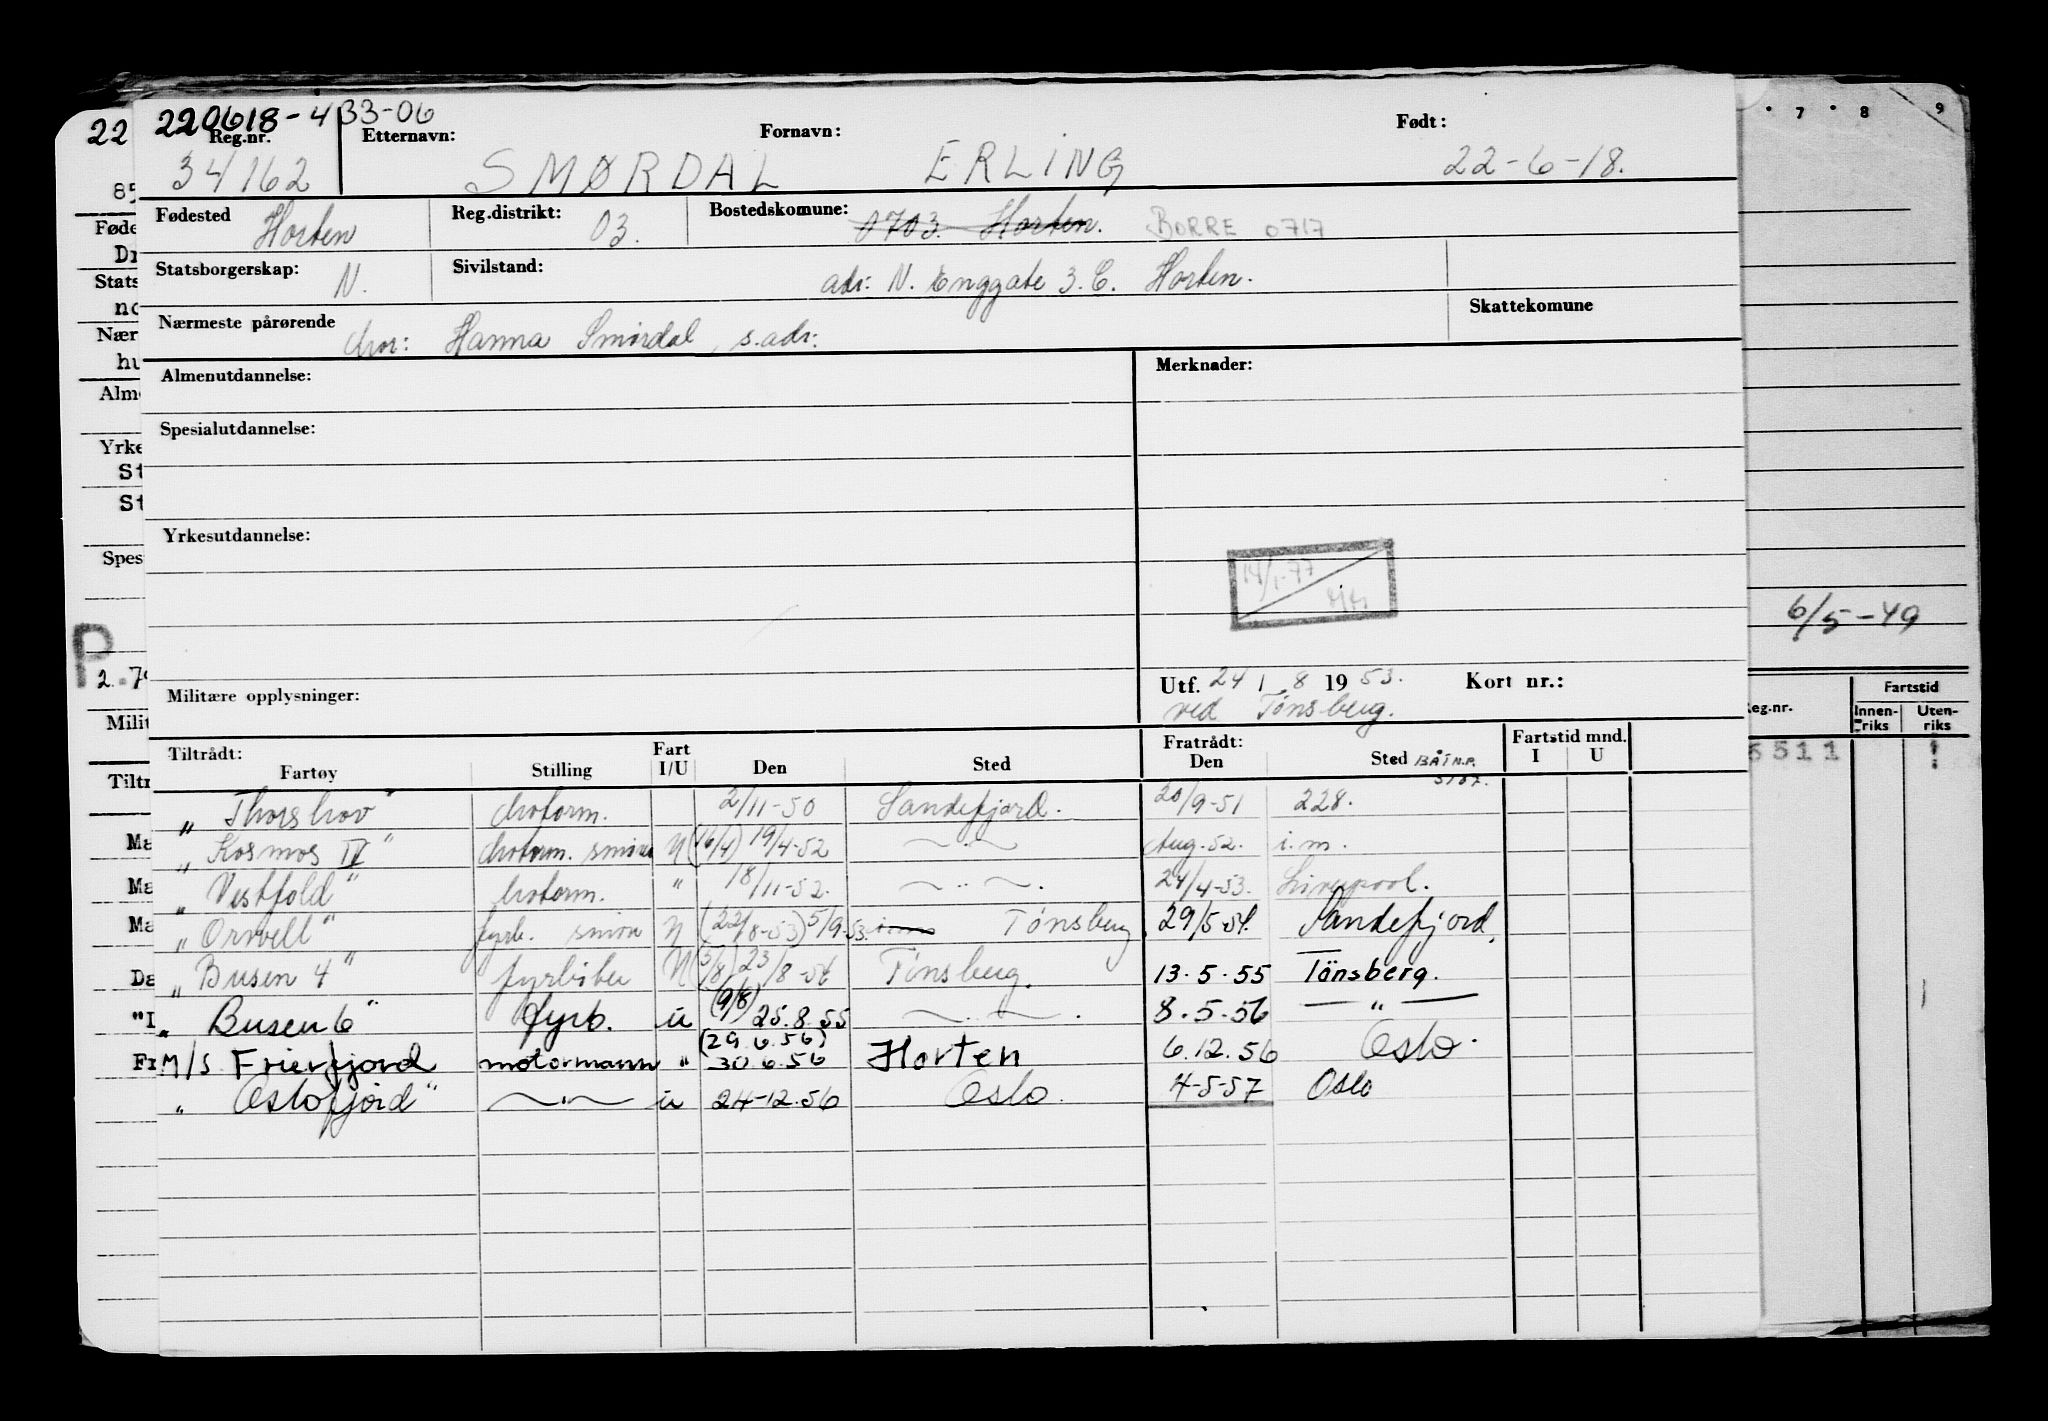 220618-433-06
Reg.nr. Etternavn: Fornavn: Født:
34162 SMØRDAL ERLING 22-6-18.
Fødested Horten Reg.distrikt: 03. Bostedskomune: 0703. Horten. BORRE 0717
Statsborgerskap: N. Sivilstand: adr: N. Enggate 3.C. Horten.
Nærmeste pårørende Mor: Hanna Smørdal, s.adr: Skattekomune
Almenutdannelse: Merknader:
Spesialutdannelse:
Yrkesutdannelse:
14/1-77
Militære opplysninger: Utf. 24/8 1953. Kort nr.:
ved Tønsberg.
Tiltrådt: Fart Fratrådt: Fartstid mnd.
Fartøy Stilling I/U Den Sted Den Sted BÅTN.P. I U
„Thorshov" Motorm. 2/11-50 Sandefjord. 20/9-51 228.
„Kosmos IV" Motorm. smører U (16/4) 19/4-52 — „ — Aug.52. i.m.
„Vestfold" Motorm. " 18/11-52. — „ —. 24/4-53. Liverpool.
„Orwell" fyrb. smører U (22/8-53) 5/9-53. Tønsberg. 29/5-54. Sandefjord.
„Busen 4" fyrbøter U (5/8) 23/8-54 Tønsberg. 13.5.55 Tönsberg.
„Busen 6" fyrb. u (9/8) 25.8.55 — „ —. 8.5.56 — " —
M/S Frierfjord motormann " (29.6.56) 30.6.56 Horten 6.12.56 Oslo.
„Oslofjord" — „ — u 24-12.56 Oslo. 4-5-57 Oslo
22
85
Føde
Stats
Nær
hu
Alme
Yrke
St
St
Spes
P
2.79
Milit
Tiltr
Ma
Ma
Ma
Da
"I
Fr
7 8 9
6/5-49
Reg.nr. Fartstid
Innen-riks Uten-riks
5511